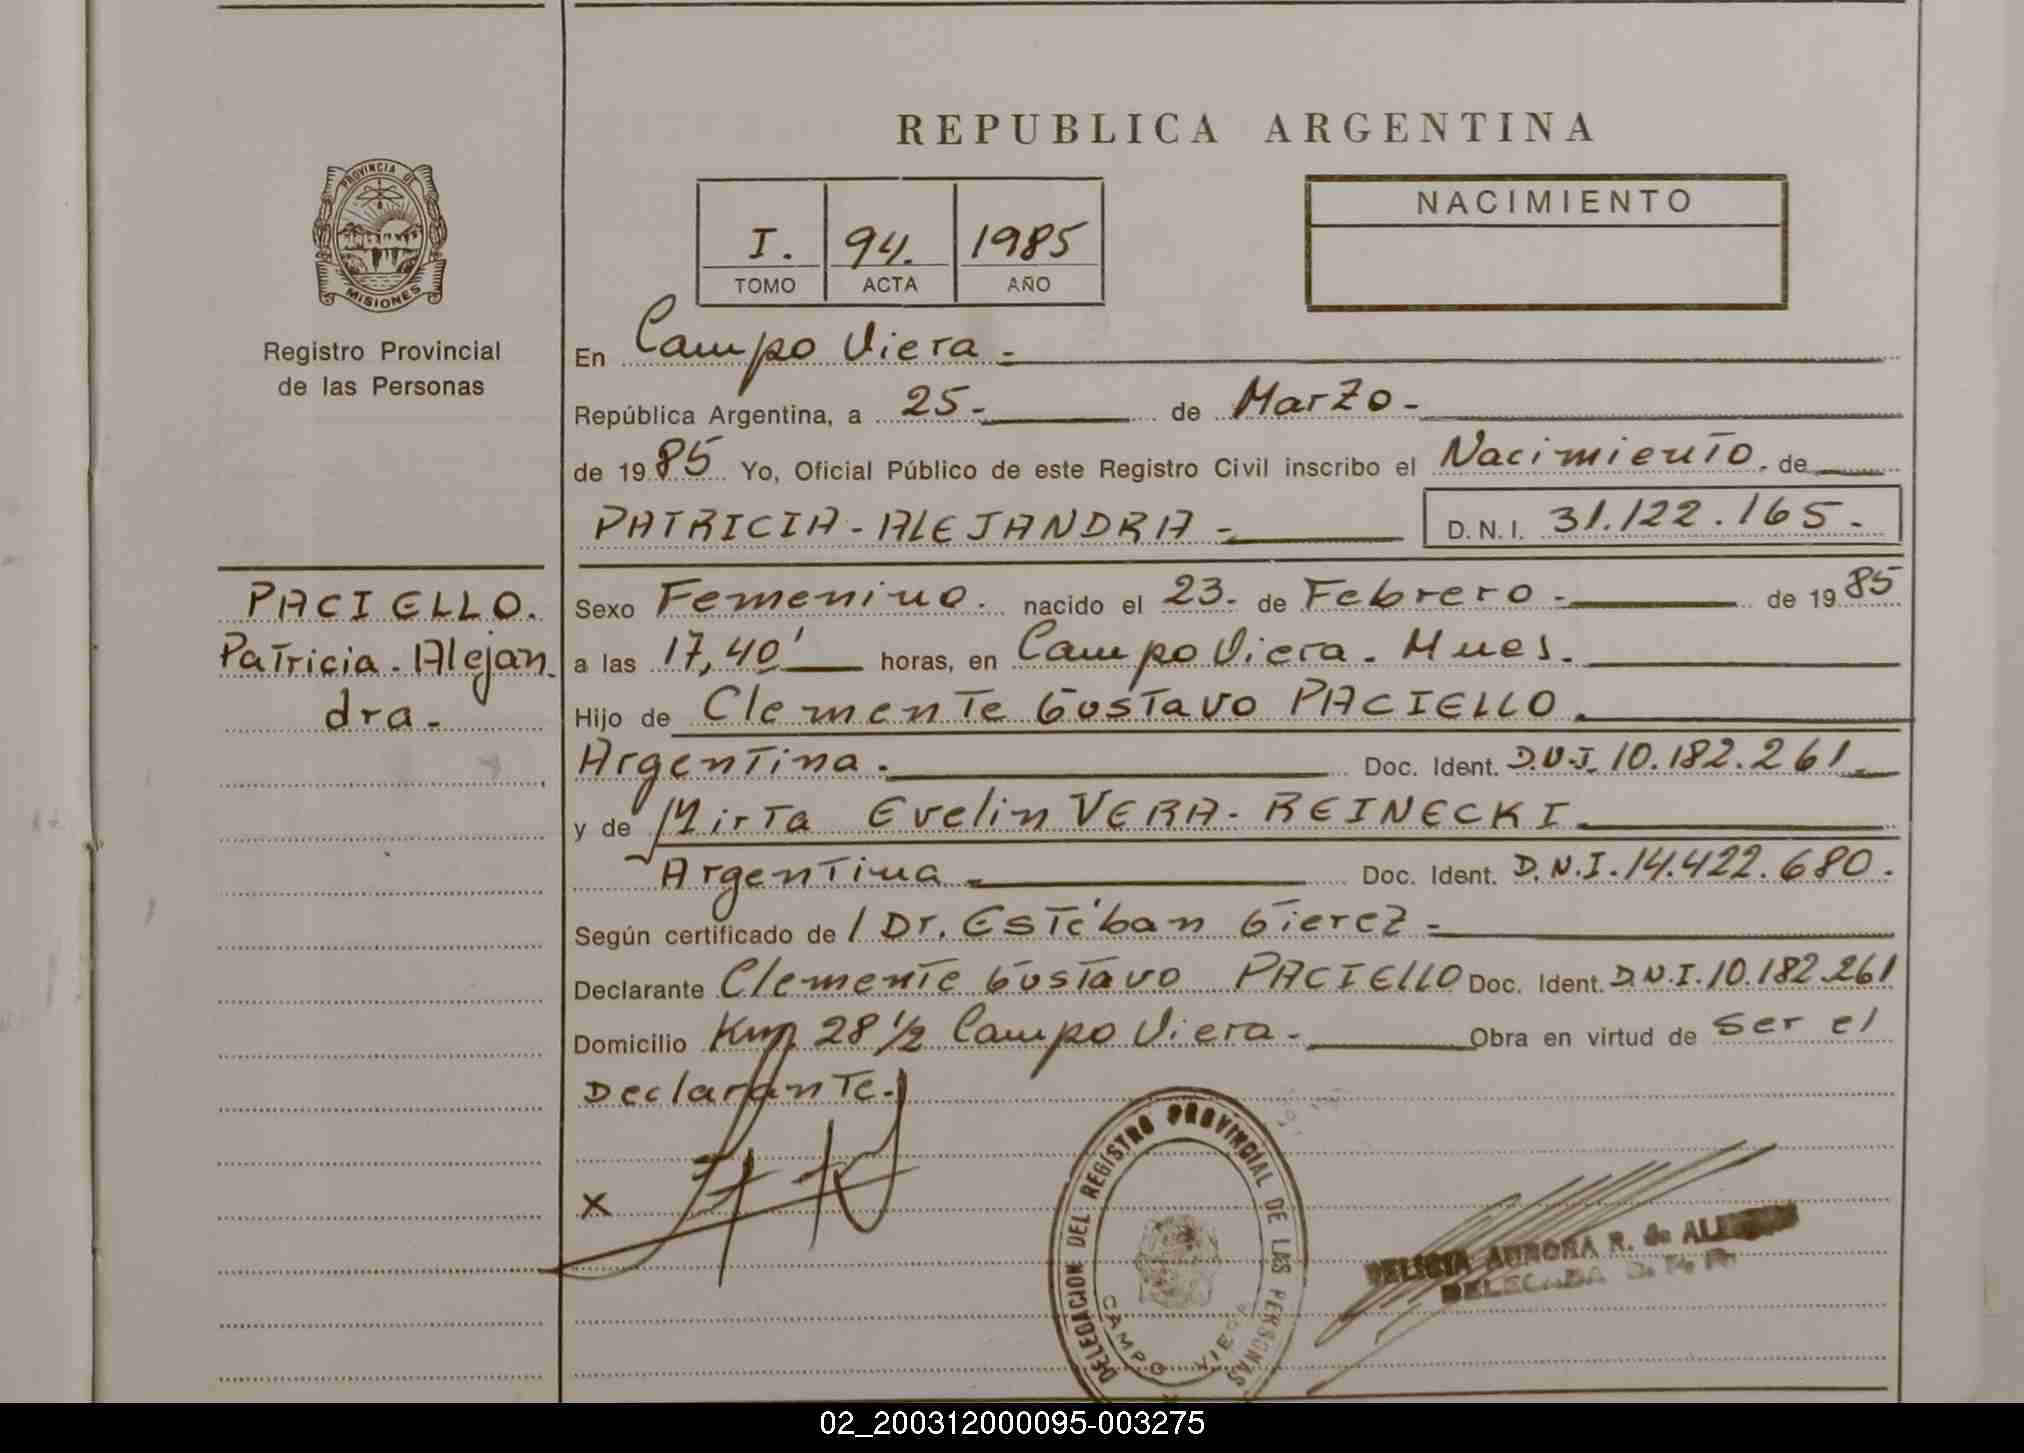 REPUBLICA ARGENTINA
PROVINCIA DE
MISIONES
Registro Provincial
de las Personas
I. 94. 1985
TOMO ACTA AÑO
NACIMIENTO
En Campo Viera.
República Argentina, a 25- de Marzo-
de 19 85 Yo, Oficial Público de este Registro Civil inscribo el Nacimiento. de
PATRICIA-ALEJANDRA- D.N.I. 31.122.165-
PACIELLO.
Patricia-Alejan
dra-
Sexo Femenino. nacido el 23- de Febrero- de 19 85
a las 17,40' horas, en Campo Viera. Mnes.
Hijo de Clemente Gustavo PACIELLO.
Argentina. Doc. Ident. D.N.I. 10.182.261
y de Mirta Evelin VERA-REINECKI.
Argentina Doc. Ident. D.N.I. 14.422.680.
Según certificado de / Dr. Estéban Gierez-
Declarante Clemente Gustavo PACIELLO Doc. Ident. D.N.I. 10.182.261
Domicilio Km 28 1/2 Campo Viera- Obra en virtud de ser el
Declarante.
X
DELEGACION DEL REGISTRO PROVINCIAL DE LAS PERSONAS
CAMPO VIERA
AURORA R. de
DELEGADA
02_200312000095-003275